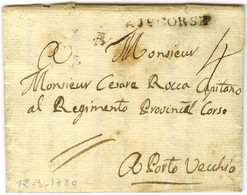 AJECORSE
A Monsieur 4
Monsieur Cesare Rocca Capitano
al Regimento Provincial Corso
A Porto Vecchio
12-3-1780